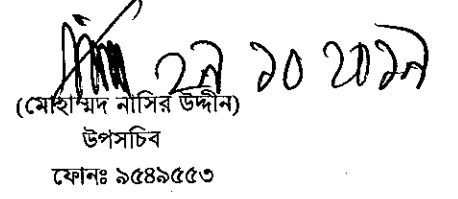 ২৯ ১০ ২০১৯
(মোহাম্মদ নাসির উদ্দীন)
উপসচিব
ফোনঃ ৯৫৪৯৫৫৩